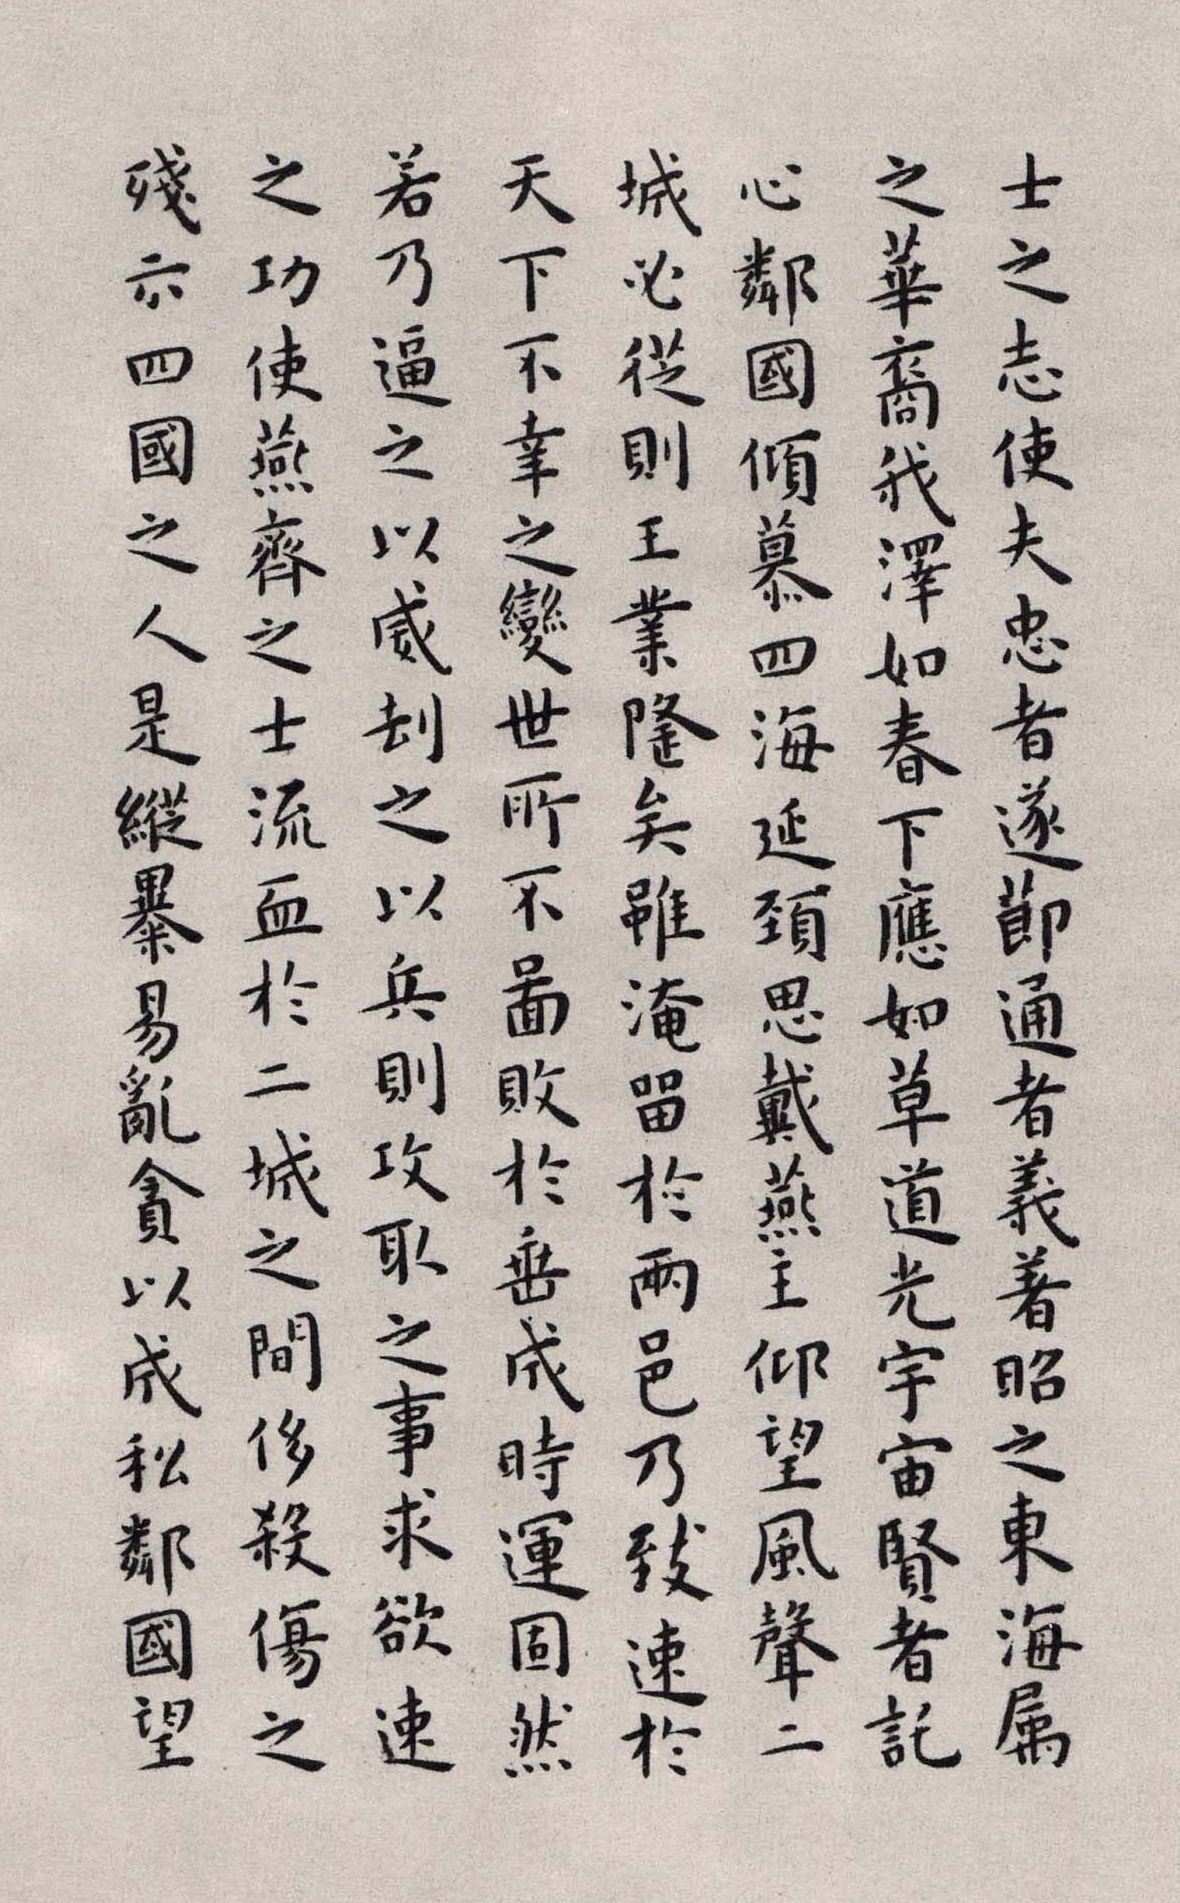 士之志使夫忠者遂節通者義著昭之東海属
之華裔我澤如春下應如草道光宇宙賢者託
心鄰國傾慕四海延頸思戴燕主仰望風聲二
城必從則王業隆矣雖淹留於兩邑乃致速於
天下不幸之變世所不啚敗於垂成時運固然
若乃逼之以威刦之以兵則攻取之事求欲速
之功使燕齊之士流血於二城之間侈殺傷之
殘示四國之人是縱暴易亂貪以成私鄰國望